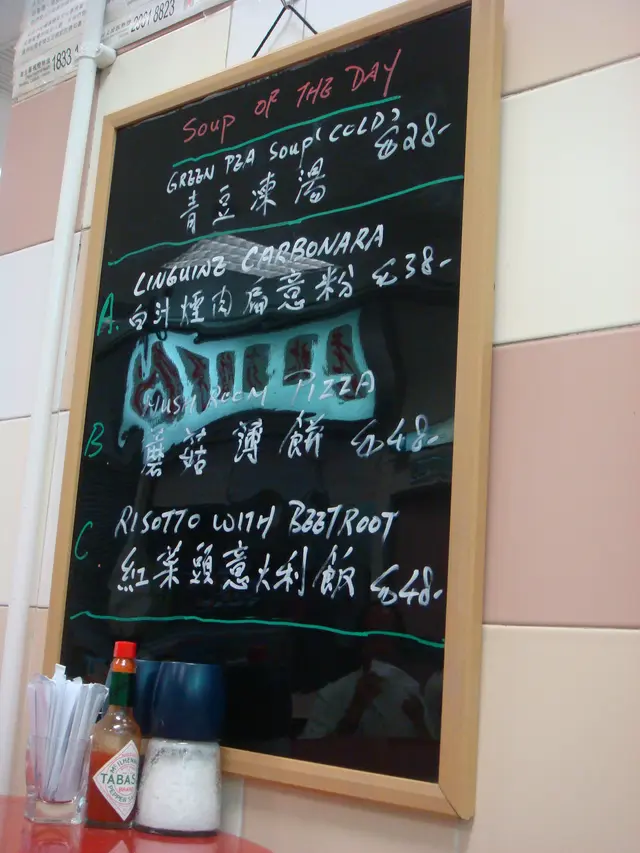 1833 
2001 8823
SOUP OF THE DAY
GREEN PEA SOUP (COLD) $28-
青豆凍湯
A. LINGUINE CARBONARA
白汁煙肉扁意粉 $38-
B MUSHROOM PIZZA
蘑菇薄餅 $48-
C RISOTTO WITH BEETROOT
紅菜頭意大利飯 $48-
TABAS
PEPPER